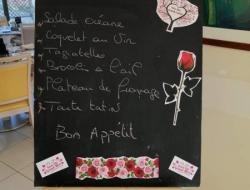 Salade océane
Coquelet au Vin
Tagiatelles
Brocolis à l'ail
Plateau de fromage
Tarte tatin
Bon Appétit